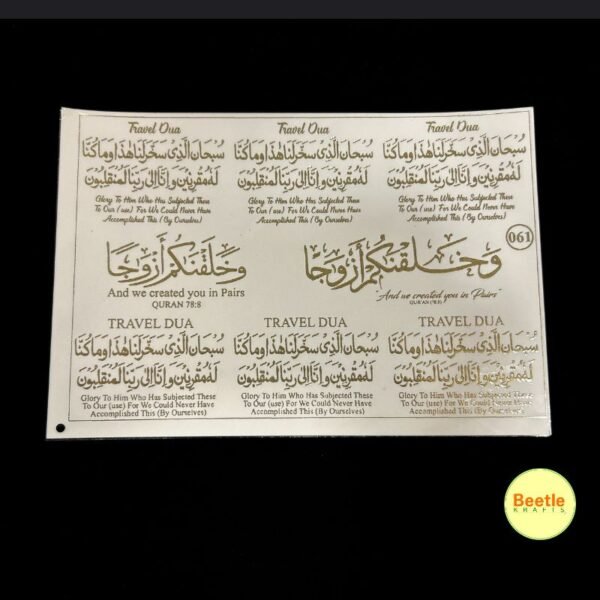 Travel Dua
سُبْحَانَ الَّذِي سَخَّرَ لَنَا هَٰذَا وَمَا كُنَّا
لَهُ مُقْرِنِينَ وَإِنَّا إِلَىٰ رَبِّنَا لَمُنْقَلِبُونَ
Glory To Him Who Has Subjected These
To Our (use) For We Could Never Have
Accomplished This (By Ourselves)
Travel Dua
سُبْحَانَ الَّذِي سَخَّرَ لَنَا هَٰذَا وَمَا كُنَّا
لَهُ مُقْرِنِينَ وَإِنَّا إِلَىٰ رَبِّنَا لَمُنْقَلِبُونَ
Glory To Him Who Has Subjected These
To Our (use) For We Could Never Have
Accomplished This (By Ourselves)
Travel Dua
سُبْحَانَ الَّذِي سَخَّرَ لَنَا هَٰذَا وَمَا كُنَّا
لَهُ مُقْرِنِينَ وَإِنَّا إِلَىٰ رَبِّنَا لَمُنْقَلِبُونَ
Glory To Him Who Has Subjected These
To Our (use) For We Could Never Have
Accomplished This (By Ourselves)
061
وَخَلَقْنَاكُمْ أَزْوَاجًا
And we created you in Pairs
QURAN 78:8
وَخَلَقْنَاكُمْ أَزْوَاجًا
"And we created you in Pairs"
QUR'AN (78:8)
TRAVEL DUA
سُبْحَانَ الَّذِي سَخَّرَ لَنَا هَٰذَا وَمَا كُنَّا
لَهُ مُقْرِنِينَ وَإِنَّا إِلَىٰ رَبِّنَا لَمُنْقَلِبُونَ
Glory To Him Who Has Subjected These
To Our (use) For We Could Never Have
Accomplished This (By Ourselves)
TRAVEL DUA
سُبْحَانَ الَّذِي سَخَّرَ لَنَا هَٰذَا وَمَا كُنَّا
لَهُ مُقْرِنِينَ وَإِنَّا إِلَىٰ رَبِّنَا لَمُنْقَلِبُونَ
Glory To Him Who Has Subjected These
To Our (use) For We Could Never Have
Accomplished This (By Ourselves)
TRAVEL DUA
سُبْحَانَ الَّذِي سَخَّرَ لَنَا هَٰذَا وَمَا كُنَّا
لَهُ مُقْرِنِينَ وَإِنَّا إِلَىٰ رَبِّنَا لَمُنْقَلِبُونَ
Glory To Him Who Has Subjected These
To Our (use) For We Could Never Have
Accomplished This (By Ourselves)
Beetle
KRAFTS